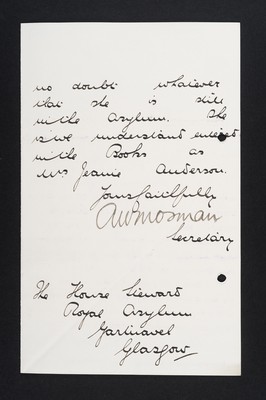 no doubt whatever
that she is still
in the Asylum. She
is we understand entered
in the Books as
Mrs Jeanie Anderson.
Yours faithfully
AW Mosman
Secretary
The House Steward
Royal Asylum
Gartnavel
Glasgow